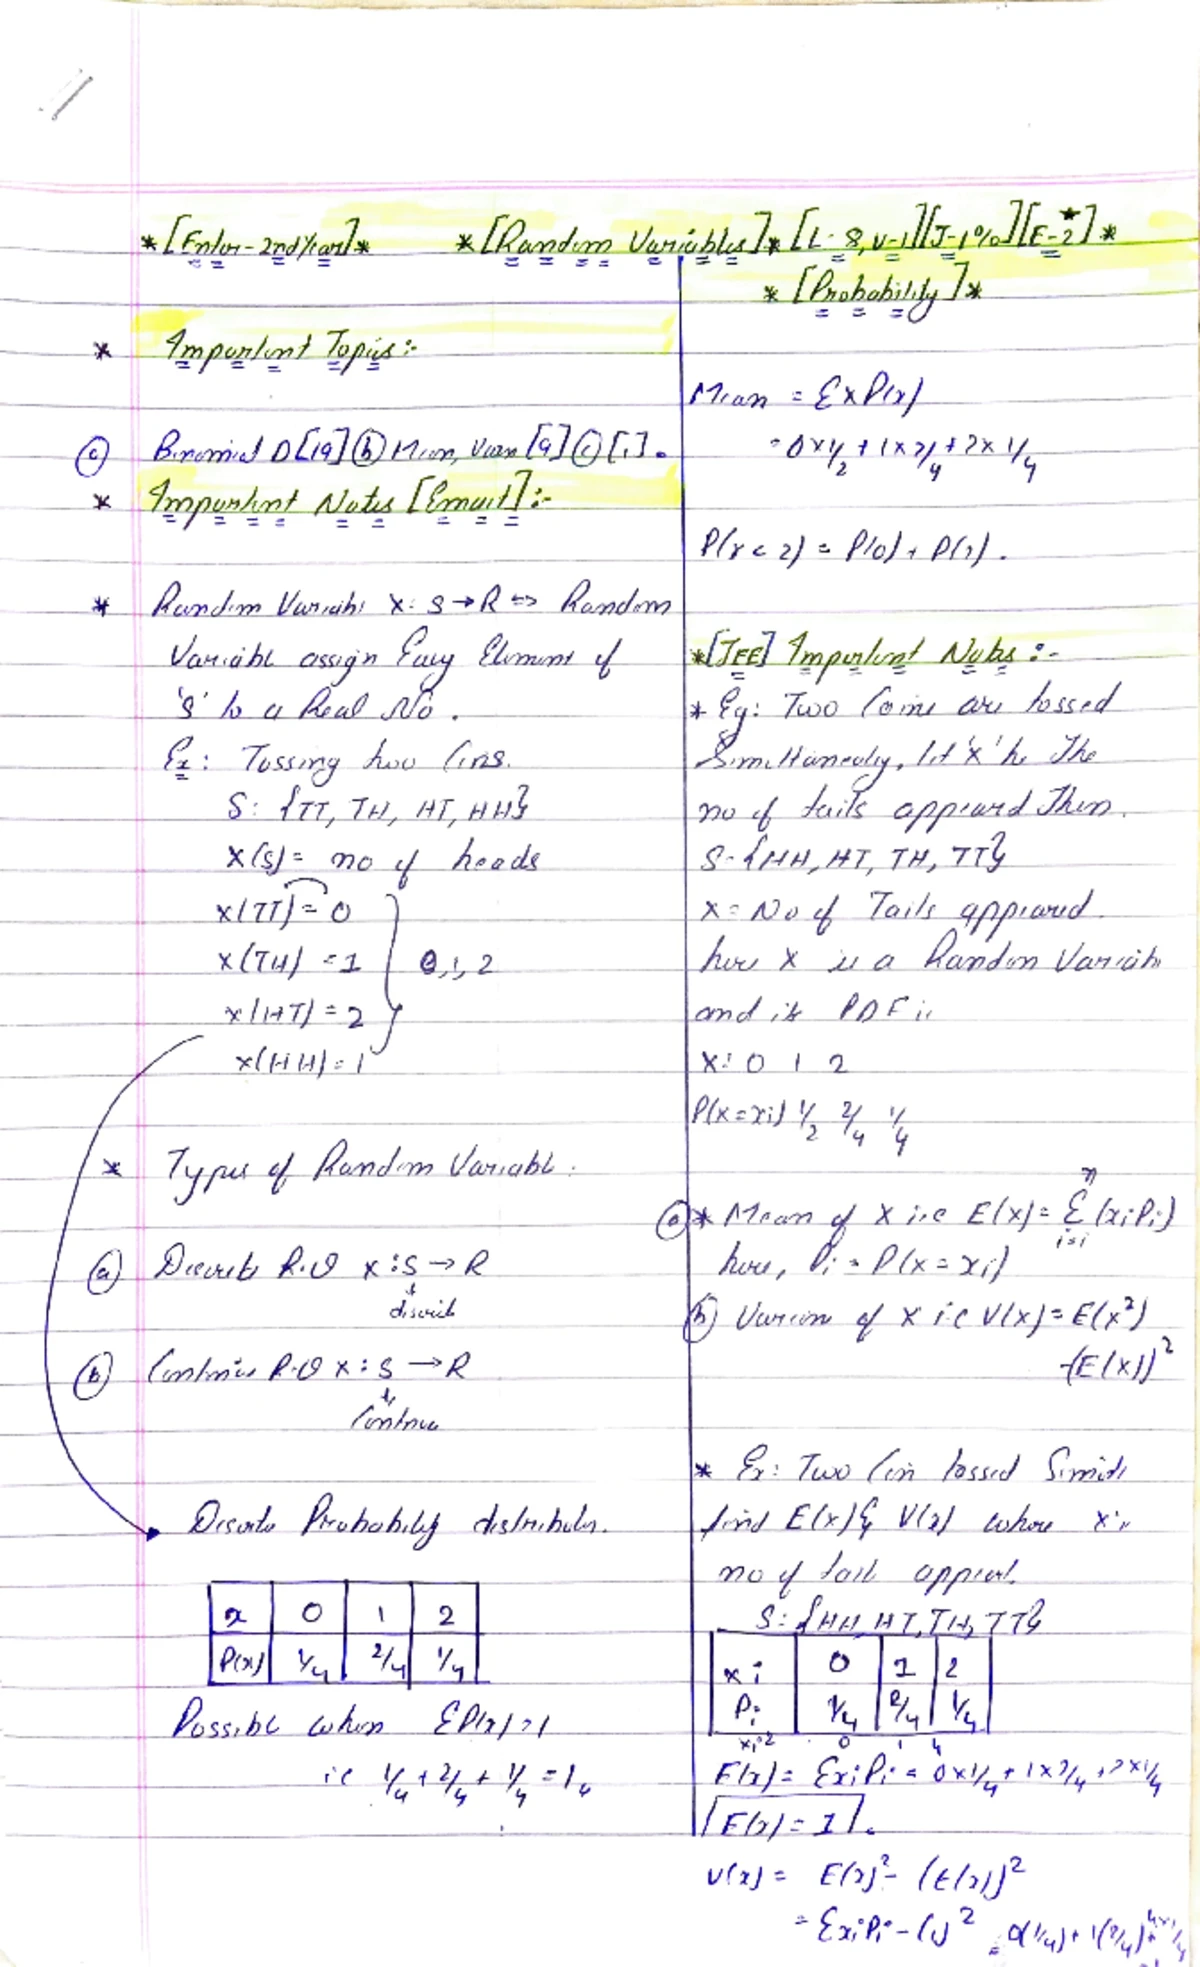 *[Enlor-2ndYear]* *[Random Variables]*[L-8,U-1][J-1%][E-2★]*
*[Probability]*
* Important Topics:-
Binomial D[19] (b) Mean, Varn [9] (c) [1].
* Important Notes [Emact]:-
* Random Variabl X: S→R ⇔ Random
Variabl assign Evey Element of
'S' to a Real No.
Ex: Tossing two Cins.
S: {TT, TH, HT, HH}
X(S)= no of heads
X(TT)= 0
X(TH) = 1 0,1,2
X(HT) = 2
X(HH) = 1
* Types of Random Variabl:
(a) Discrete R.V X:S→R
discrete
(b) Continuos R.V X:S→R
Continous
Discrete Probability distribution.
x 0 1 2
P(x) 1/4 2/4 1/4
Possible when ΣP(x)=1
i.e 1/4+2/4+1/4=1
Mean = ΣxP(x)
=0x1/2+1x2/4+2x1/4
P(x<2)=P(0)+P(1).
*[JEE] Important Notes:-
* Eg: Two Coins are tossed
Simultaneoly, let 'x' be The
no of tails appeard Then.
S-{HH, HT, TH, TT}
x = No of Tails appeared.
here x is a Random Variabl
and its PDF is
X: 0 1 2
P(X=xi) 1/2 2/4 1/4
(a)* Mean of X i.e E(x)= n Σ i=1 (xiPi)
here, Pi = P(x=xi)
(b) Varian of X i.e V(x)=E(x²)
-(E(x))²
* Ex: Two Coin tossed Simult
find E(x)& V(x) where x is
no of tail appeart.
S:{HH, HT, TH, TT}
xi 0 1 2
Pi 1/4 2/4 1/4
xi² 0 1 4
E(x)= ΣxiPi = 0x1/4+1x2/4+2x1/4
E(x)=1.
V(x)= E(x)²-(E(x))²
=ΣxiPi-(1)² = 0(1/4)+1(2/4)+4x1/4